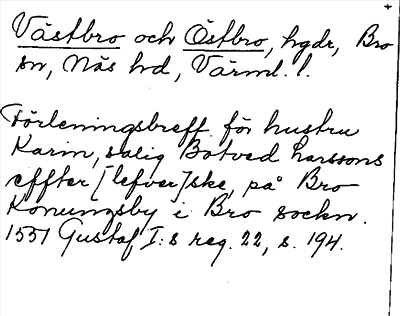 Västbro och Östbro, hgdr, Bro
sn, Näs hd, Värml. l.
Förleningsbreff för hustru
Karin, salig Botved Larssons
effter[lefver]ske, på Bro
Konungsby i Bro sockn.
1551 Gustaf I:s reg. 22, s. 194.